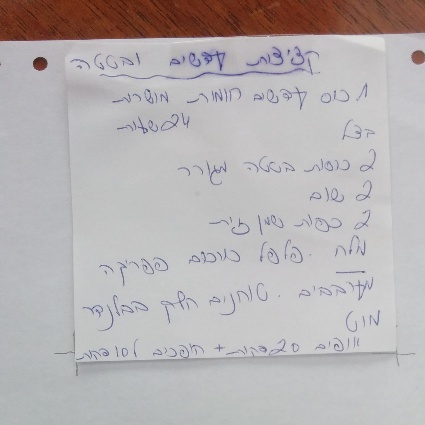 קציצות עדשים ובטטה
1 כוס עדשים חומות מושרות
24 שעות
בצל
2 כוסות בטטה מגורר
2 שום
2 כפות שמן זית
מלח . פלפל כורכום פפריקה
מערבבים . טוחנים חלק בבלנדר
מוט
אופים 20 דקות + הופכים ל10 דקות